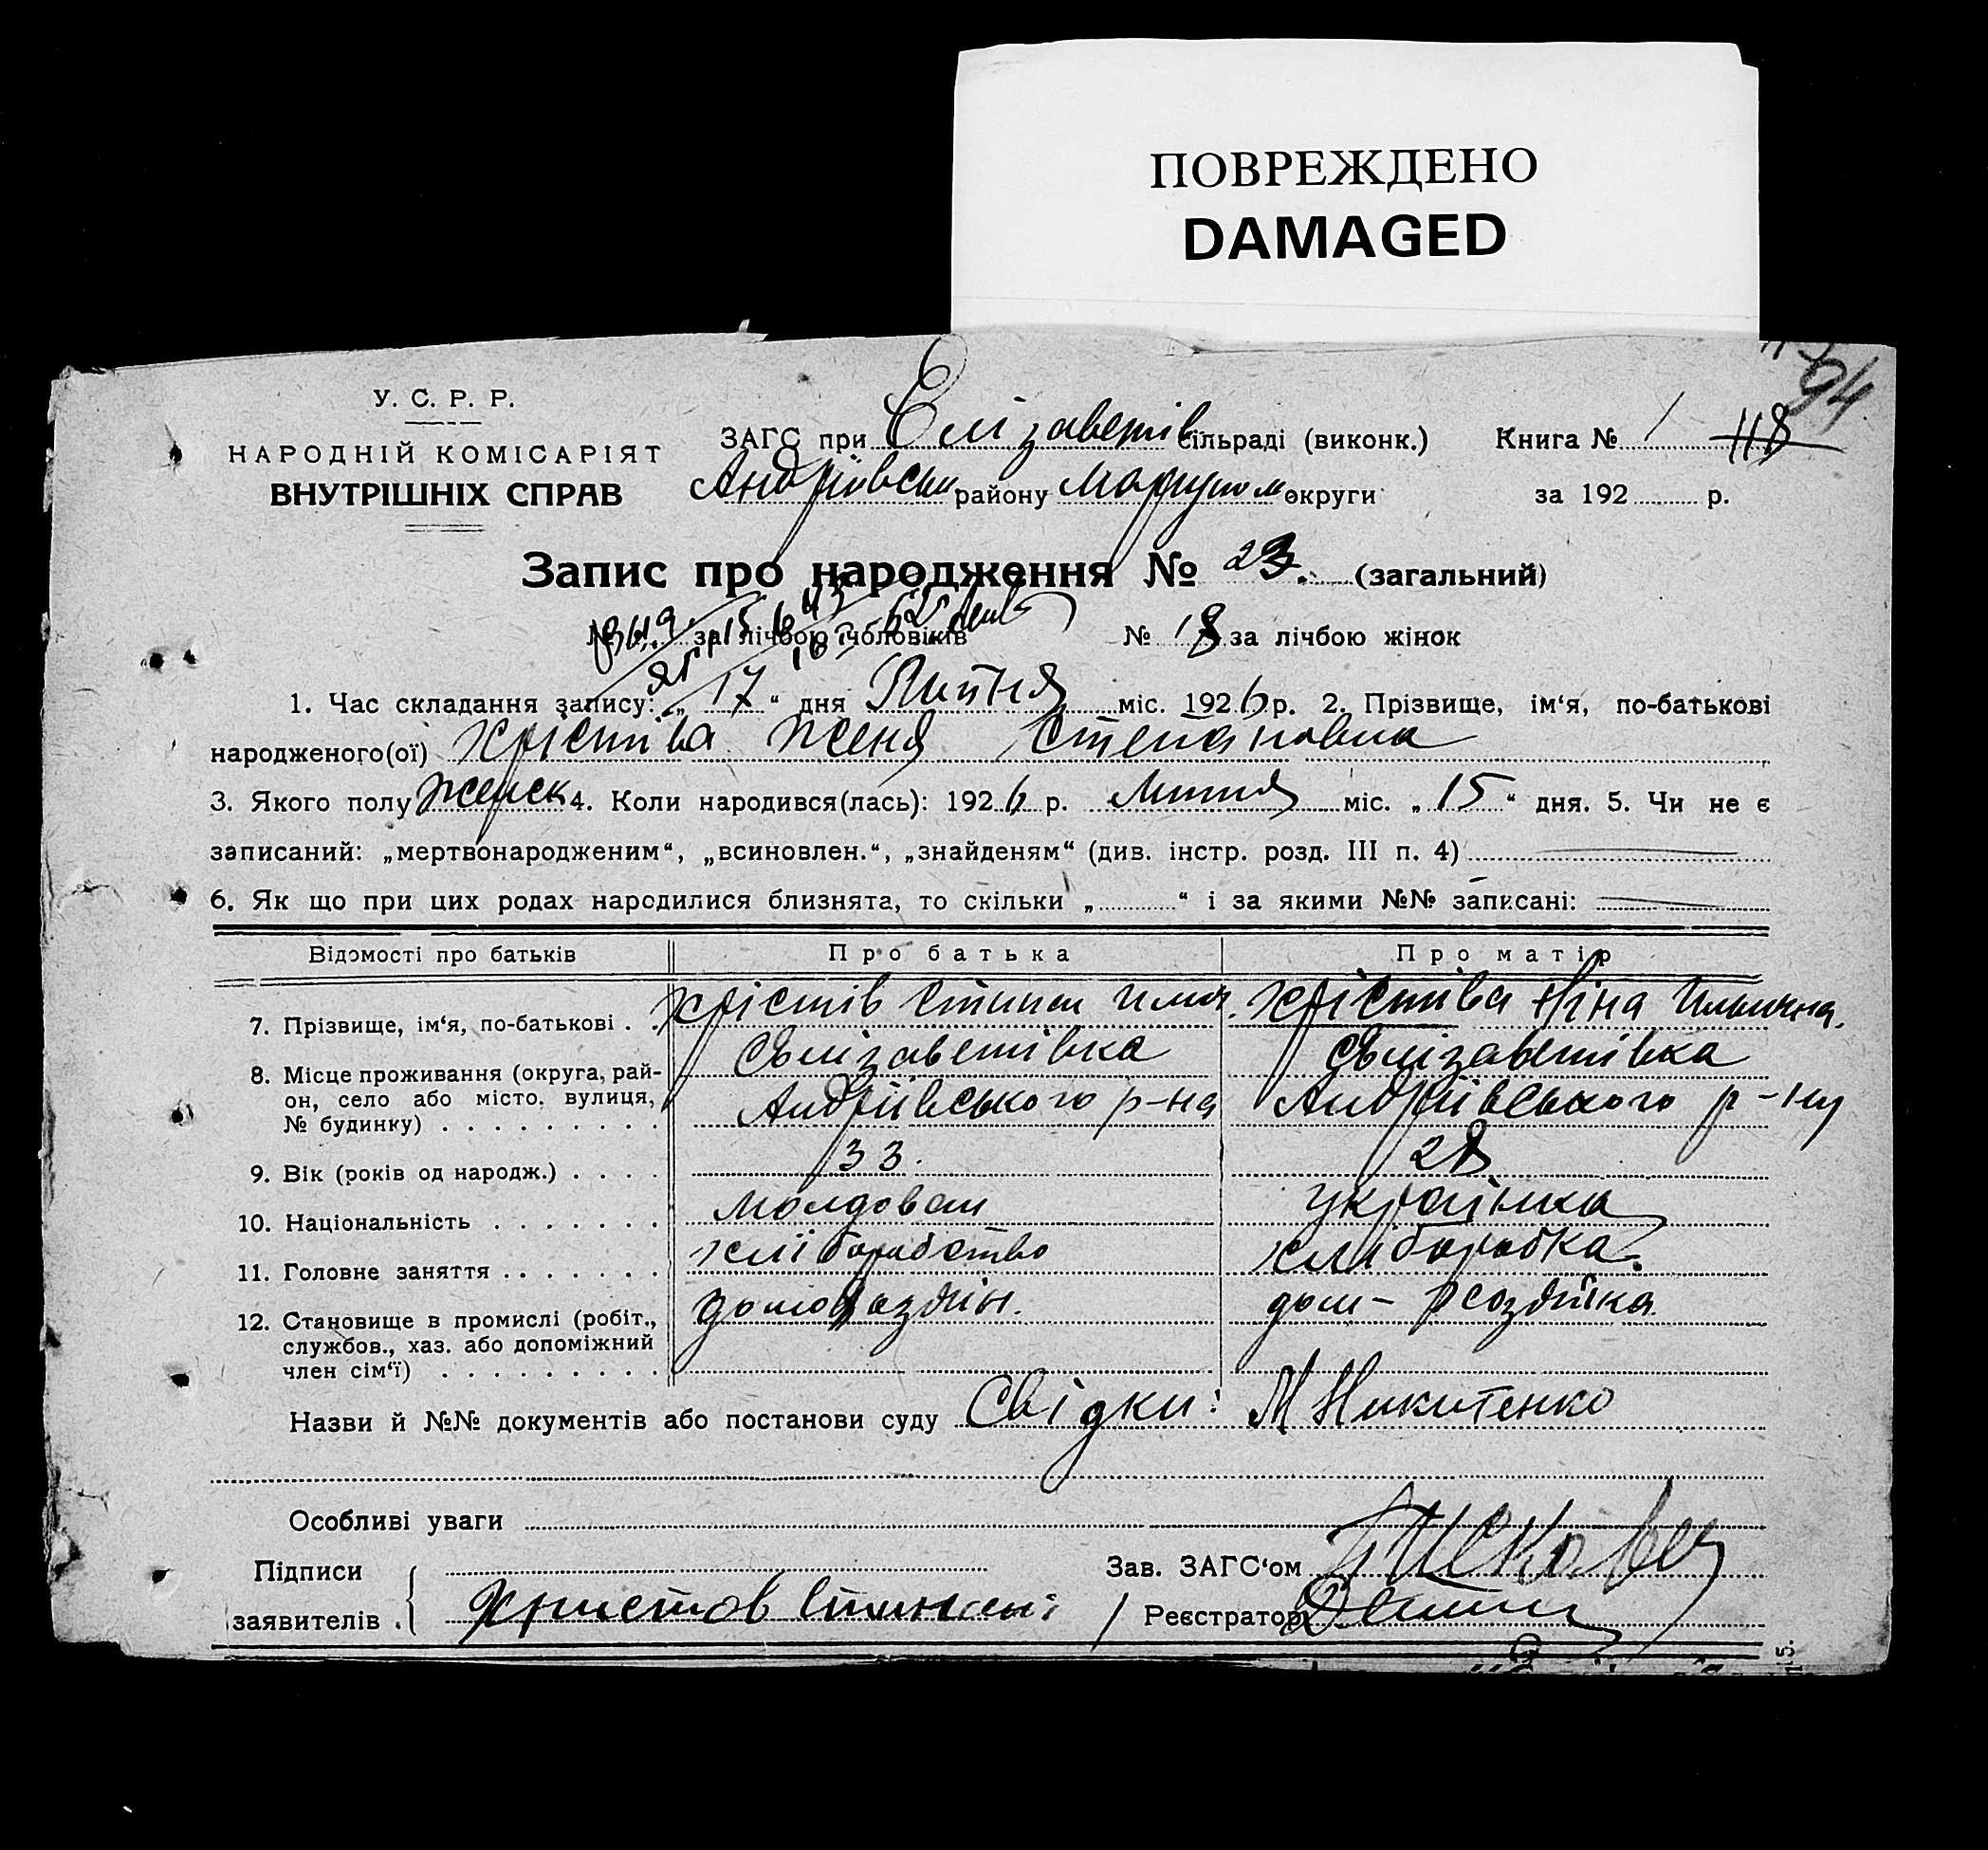 ПОВРЕЖДЕНО
DAMAGED
94
У. С. Р. Р.
НАРОДНІЙ КОМІСАРІЯТ
ВНУТРІШНІХ СПРАВ
ЗАГС при Єлізаветів сільраді (виконк.) Книга № 1 118
Андріївськ району Маріупом округи за 192 р.
Запис про народження № 23. (загальний)
№ за лічбою чоловіків № 18 за лічбою жінок
1. Час складання запису: „ 17 “ дня Липня міс. 1926 р. 2. Прізвище, ім‘я, по-батькові
народженого(ої) Хрістіва Женя Степановна
3. Якого полу женск 4. Коли народився(лась): 1926 р. Липня міс. „ 15 “ дня. 5. Чи не є
записаний: „мертвонародженим“, „всиновлен.“, „знайденям“ (див. інстр. розд. III п. 4)
6. Як що при цих родах народилися близнята, то скільки „ “ і за якими №№ записані:
Відомості про батьків Про батька Про матір
7. Прізвище, ім‘я, по-батькові . . Хрістів Степан Ильч. Хрістіва Ніна Ильична.
8. Місце проживання (округа, рай- Єлізаветівка Єлізаветівка
он, село або місто, вулиця, Андріївського р-на Андріївського р-ну
№ будинку) . . . . . . . . .
9. Вік (років од народж.) . . . . 33. 28
10. Національність . . . . . . . молдован українка
11. Головне заняття . . . . . . . хліборобство хліборобка.
12. Становище в промислі (робіт., домохозяїн. дом-хозяйка
службов., хаз. або допоміжний
член сім‘ї) . . . . . . . . .
Назви й №№ документів або постанови суду Свідки: М Никитенко
Особливі уваги
Підписи Зав. ЗАГС‘ом
заявителів . Христов Степан Реєстратор